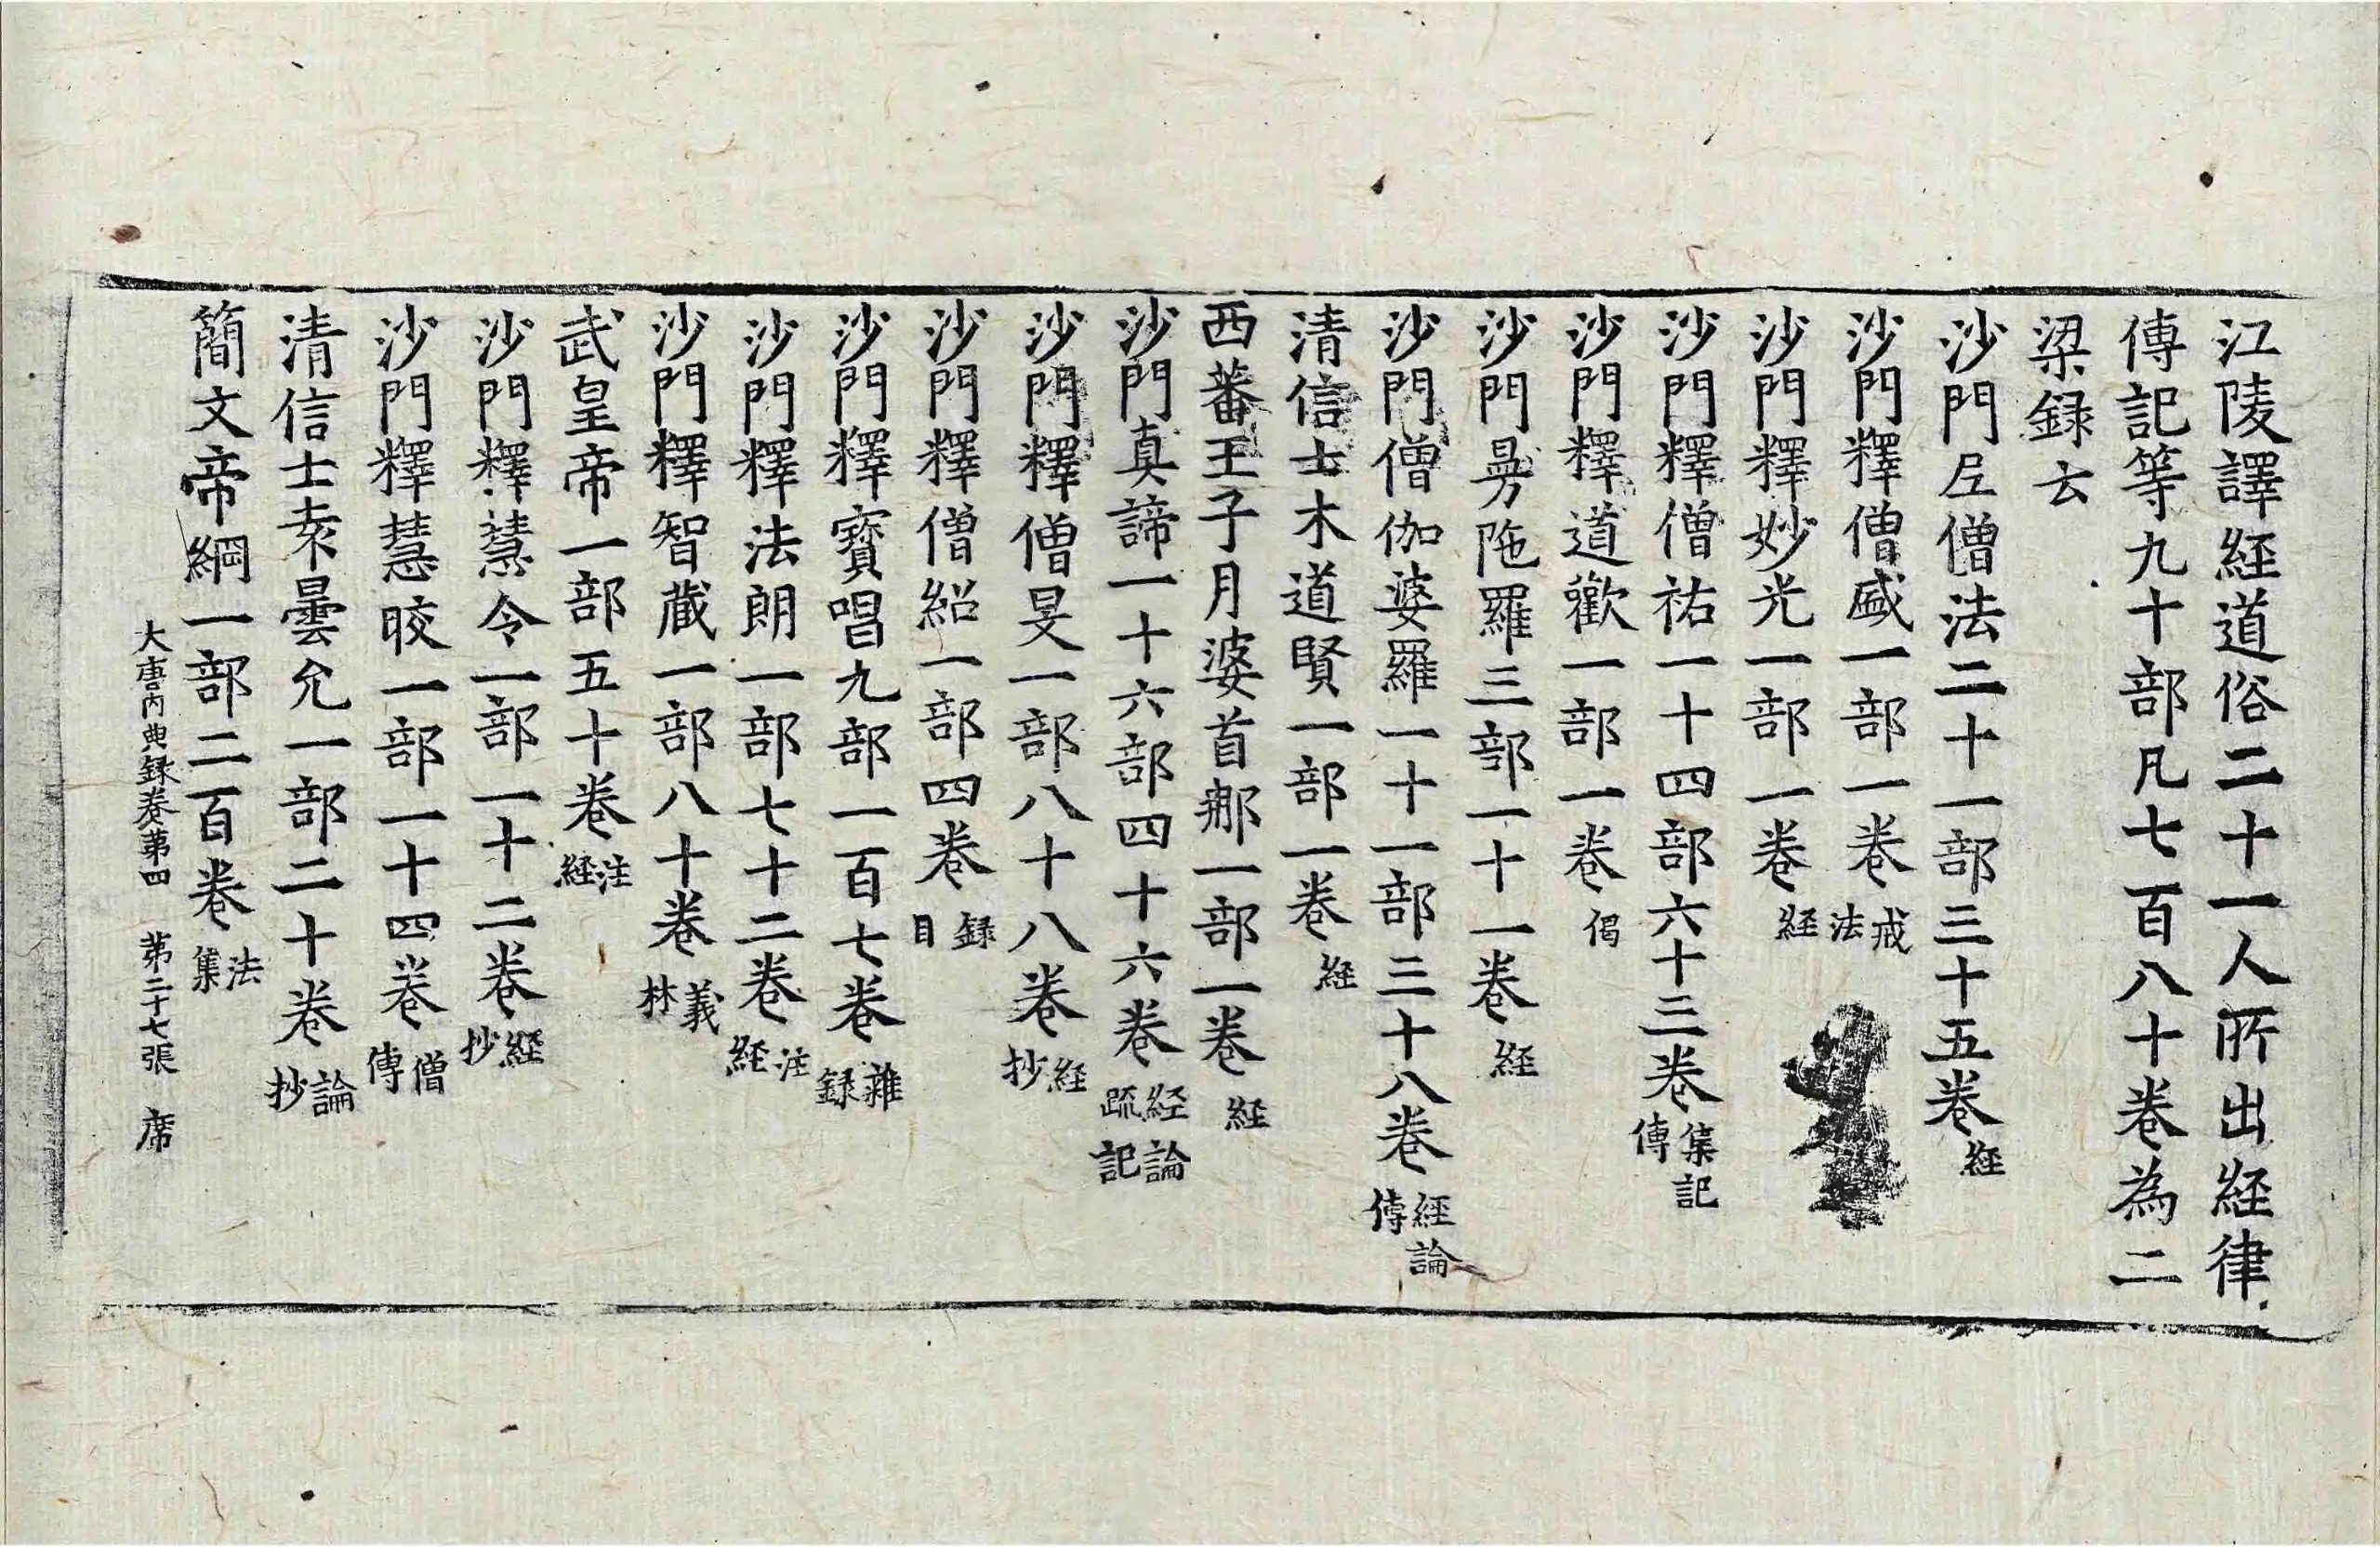 江陵譯経道俗二十一人所出経律
傳記等九十部凡七百八十卷為二
梁録云
沙門尼僧法二十一部三十五卷経
沙門釋僧盛一部一卷戒法
沙門釋妙光一部一卷経
沙門釋僧祐一十四部六十三卷集記傳
沙門釋道歡一部一卷偈
沙門曼陁羅三部一十一卷経
沙門僧伽婆羅一十一部三十八卷経論傳
清信士木道賢一部一卷経
西蕃王子月婆首那一部一卷経
沙門真諦一十六部四十六卷経論疏記
沙門釋僧旻一部八十八卷経抄
沙門釋僧紹一部四卷録目
沙門釋寶唱九部一百七卷雜録
沙門釋法朗一部七十二卷注経
沙門釋智藏一部八十卷義林
武皇帝一部五十卷注経
沙門釋慧令一部一十二卷経抄
沙門釋慧皎一部一十四卷僧傳
清信士袁曇允一部二十卷論抄
簡文帝綱一部二百卷法集
大唐内典録卷第四 第二十七張 席